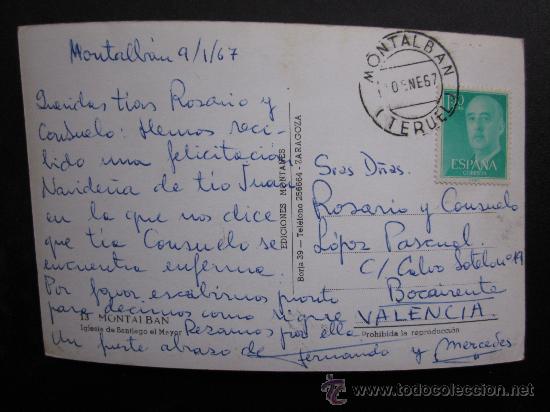 Montalbán 9/1/67
Queridas tías Rosario y
Consuelo: Hemos reci-
bido una felicitación
Navideña de tío Juan
en la que nos dice
que tía Consuelo se
encuentra enferma.
Por favor escribirnos pronto
para decirnos como sigue
Rezamos por ella
Un fuerte abrazo de Fernando y Mercedes
MONTALBAN
Iglesia de Santiago el Mayor
EDICIONES MONTAÑES
Borja 39 — Teléfono 256664 - ZARAGOZA
Prohibida la reproducción
MONTALBAN
ENE 67
(TERUEL)
ESPAÑA
CORREOS
Sras Dñas.
Rosario y Consuelo
López Pascual
C/ Calvo Sotelo nº 19
Bocairente
VALENCIA
todocoleccion.net